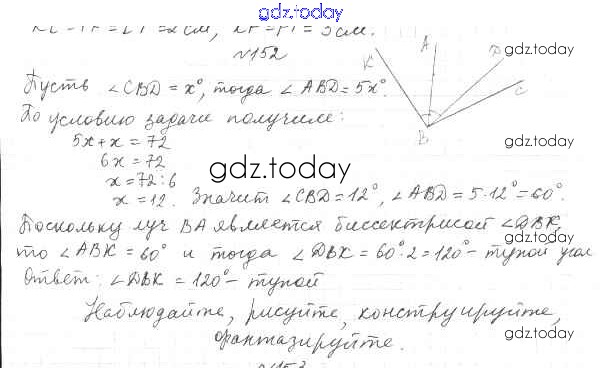 gdz.today
см,
см.
№152
gdz.today
Пусть ∠CBD = x°, тогда ∠ABD = 5x°.
По условию задачи получим:
5x + x = 72
6x = 72
x = 72 : 6
x = 12. Значит ∠CBD = 12°, ∠ABD = 5·12° = 60°.
K A D C B
gdz.today
gdz.today
Поскольку луч BA является биссектрисой ∠DBK,
то ∠ABK = 60° и тогда ∠DBK = 60°·2 = 120° – тупой угол
gdz.today
Ответ: ∠DBK = 120° – тупой
Наблюдайте, рисуйте, конструируйте,
фантазируйте.
gdz.today
№153